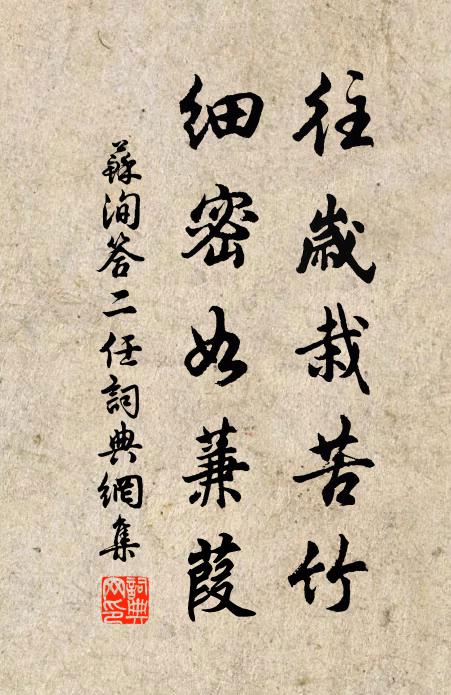 往歲栽苦竹
細密如蒹葭
蘇洵答二任詞典網集
詞典網印